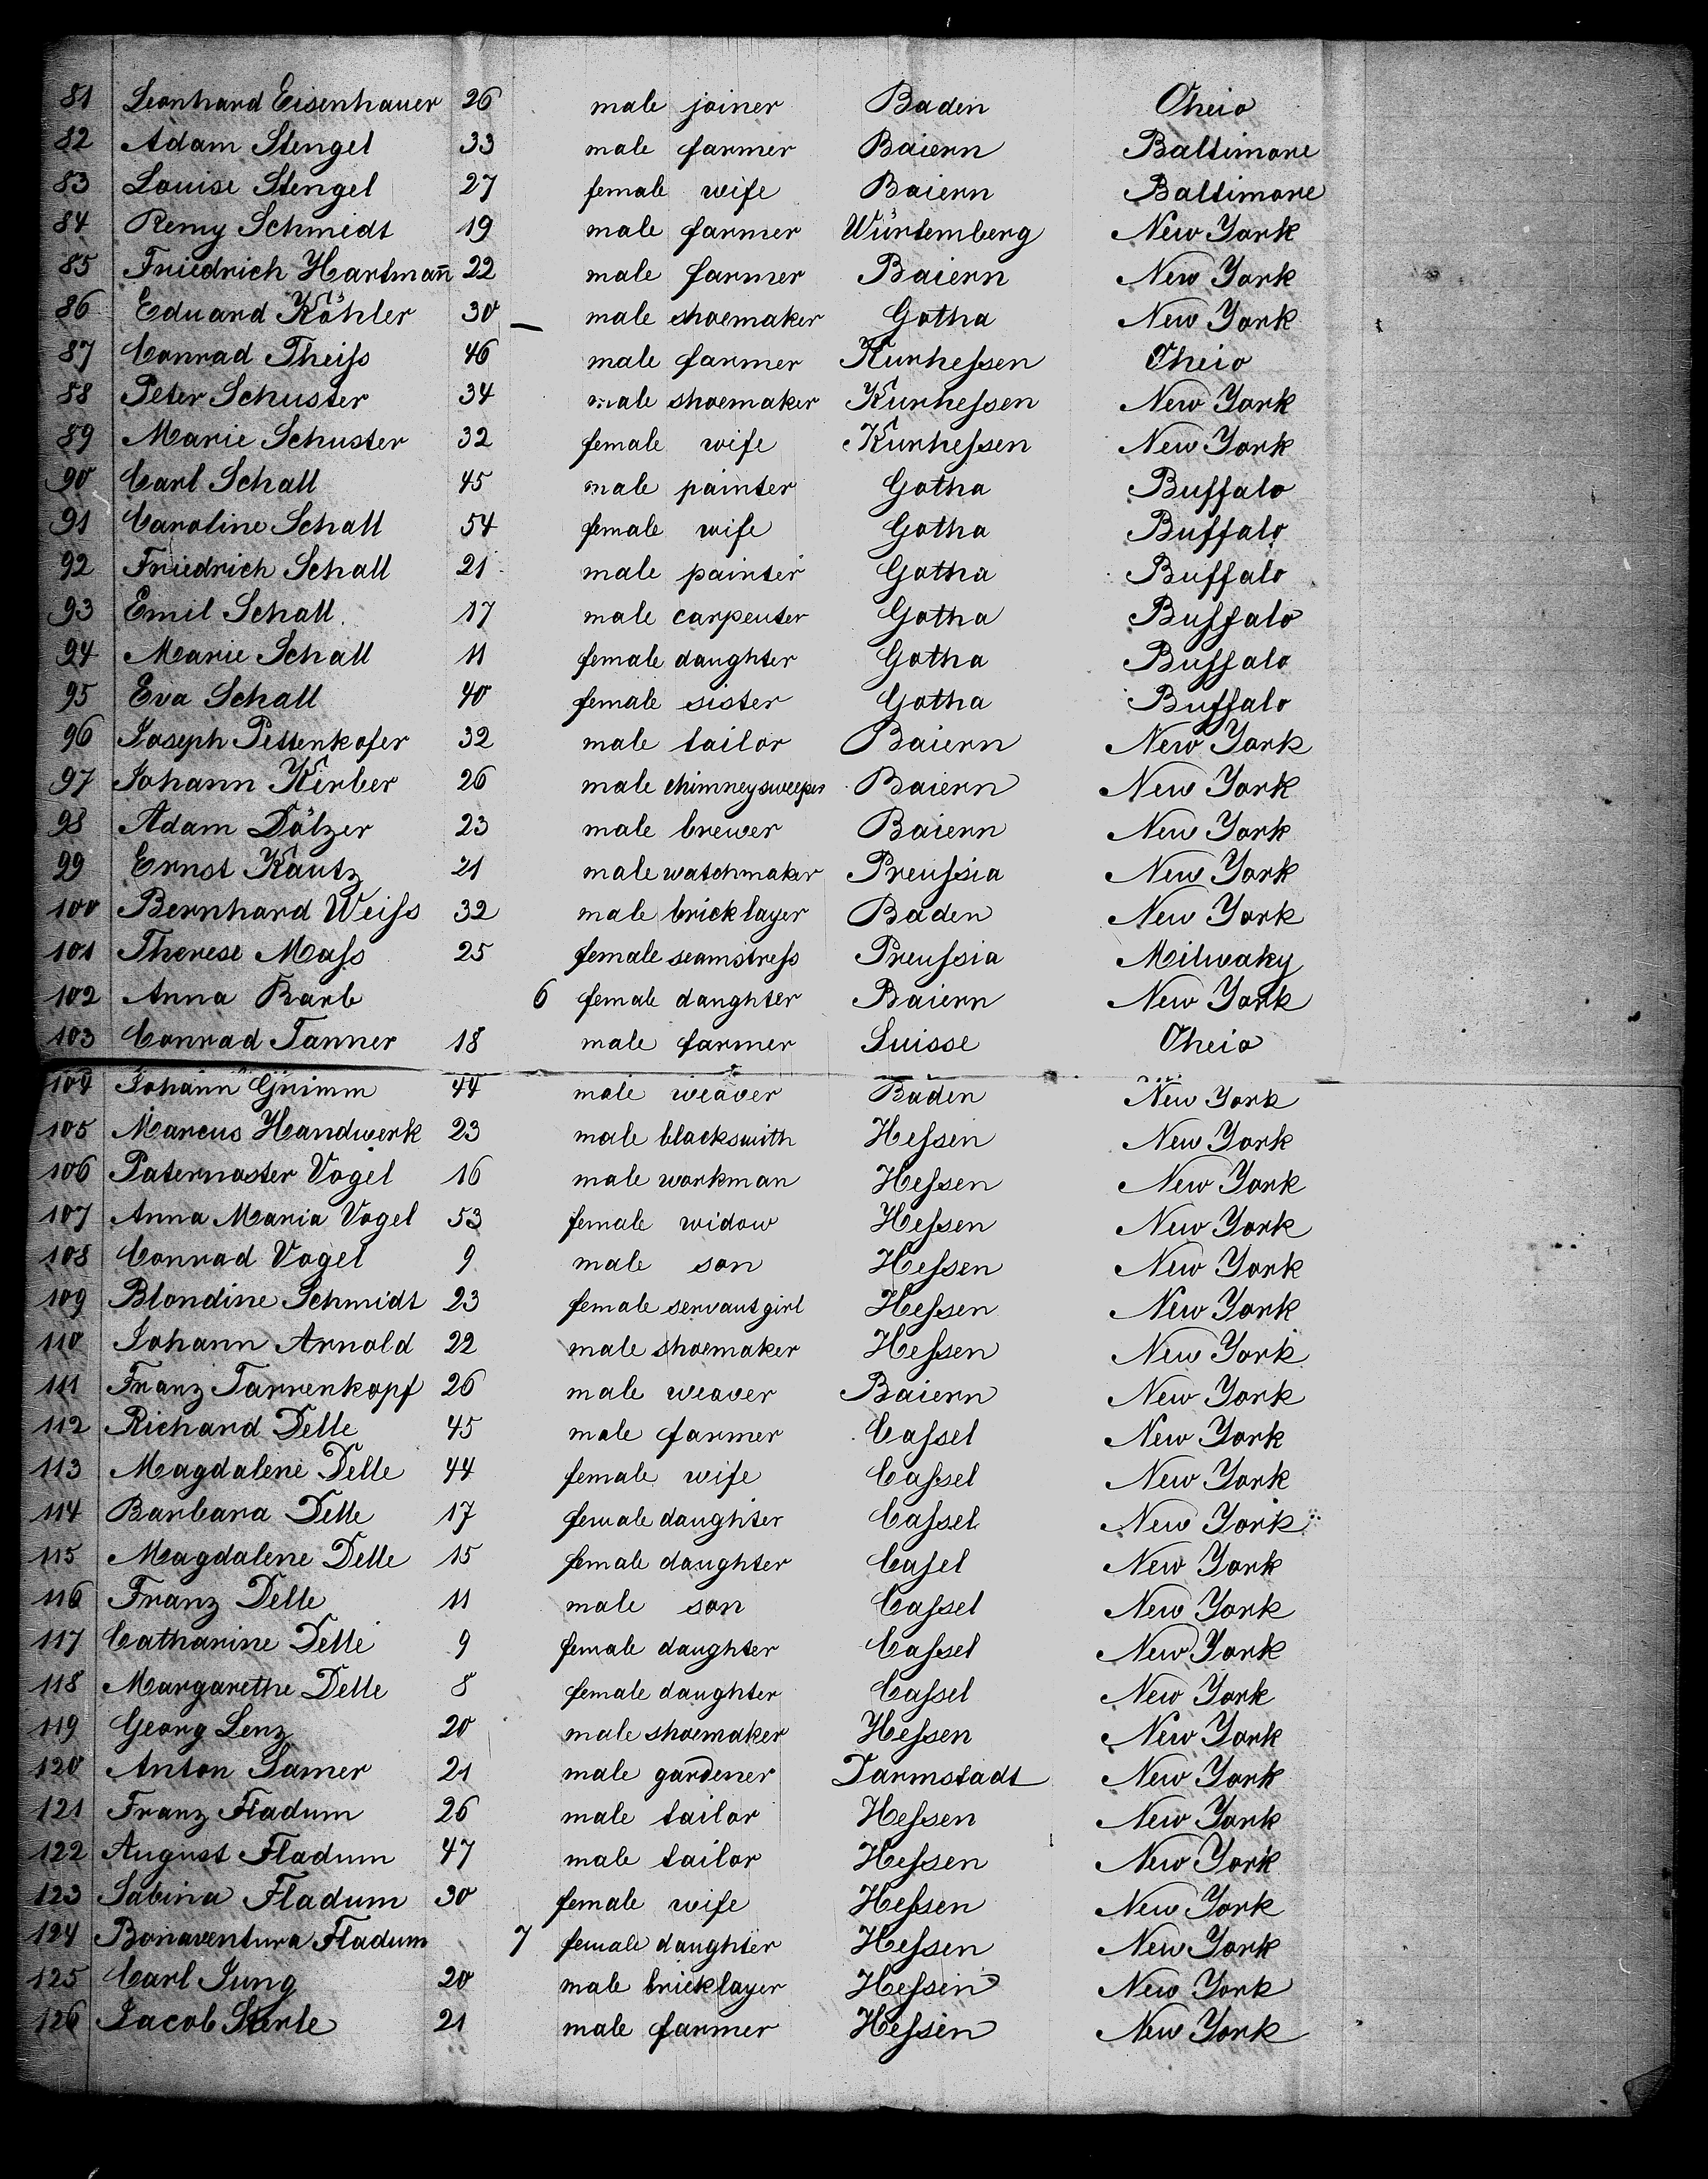 81 Leonhard Eisenhauer 26 male joiner Baden Oheio
82 Adam Stengel 33 male farmer Baiern Baltimore
83 Louise Stengel 27 female wife Baiern Baltimore
84 Remy Schmidt 19 male farmer Würtemberg New York
85 Friedrich Hartmañ 22 male farmer Baiern New York
86 Eduard Köhler 30 male shoemaker Gotha New York
87 Conrad Theiſs 46 male farmer Kurheſsen Oheio
88 Peter Schuster 34 male shoemaker Kurheſsen New York
89 Marie Schuster 32 female wife Kurheſsen New York
90 Carl Schall 45 male painter Gotha Buffalo
91 Caroline Schall 54 female wife Gotha Buffalo
92 Friedrich Schall 21 male painter Gotha Buffalo
93 Emil Schall 17 male carpenter Gotha Buffalo
94 Marie Schall 11 female daughter Gotha Buffalo
95 Eva Schall 40 female sister Gotha Buffalo
96 Joseph Pettenkofer 32 male tailor Baiern New York
97 Johann Kerber 26 male chimneysweeper Baiern New York
98 Adam Dölzer 23 male brewer Baiern New York
99 Ernst Kautz 21 male watchmaker Preuſsia New York
100 Bernhard Weiſs 32 male bricklayer Baden New York
101 Therese Maſs 25 female seamstreſs Preuſsia Milwaky
102 Anna Barb 6 female daughter Baiern New York
103 Conrad Tanner 18 male farmer Suisse Oheio
104 Johann Grimm 44 male weaver Baden New York
105 Marcus Handwerk 23 male blacksmith Heſsen New York
106 Paternoster Vogel 16 male workman Heſsen New York
107 Anna Maria Vogel 53 female widow Heſsen New York
108 Conrad Vogel 9 male son Heſsen New York
109 Blondine Schmidt 23 female servantgirl Heſsen New York
110 Johann Arnold 22 male shoemaker Heſsen New York
111 Franz Tannenkopf 26 male weaver Baiern New York
112 Richard Delle 45 male farmer Caſsel New York
113 Magdalene Delle 44 female wife Caſsel New York
114 Barbara Delle 17 female daughter Caſsel New York
115 Magdalene Delle 15 female daughter Caſel New York
116 Franz Delle 11 male son Caſsel New York
117 Catharine Delle 9 female daughter Caſsel New York
118 Margarethe Delle 8 female daughter Caſsel New York
119 Georg Lenz 20 male shoemaker Heſsen New York
120 Anton Samer 21 male gardener Darmstadt New York
121 Franz Fladum 26 male tailor Heſsen New York
122 August Fladum 47 male tailor Heſsen New York
123 Sabina Fladum 30 female wife Heſsen New York
124 Bonaventura Fladum 7 female daughter Heſsen New York
125 Carl Jung 20 male bricklayer Heſsen New York
126 Jacob Sterle 21 male farmer Heſsen New York